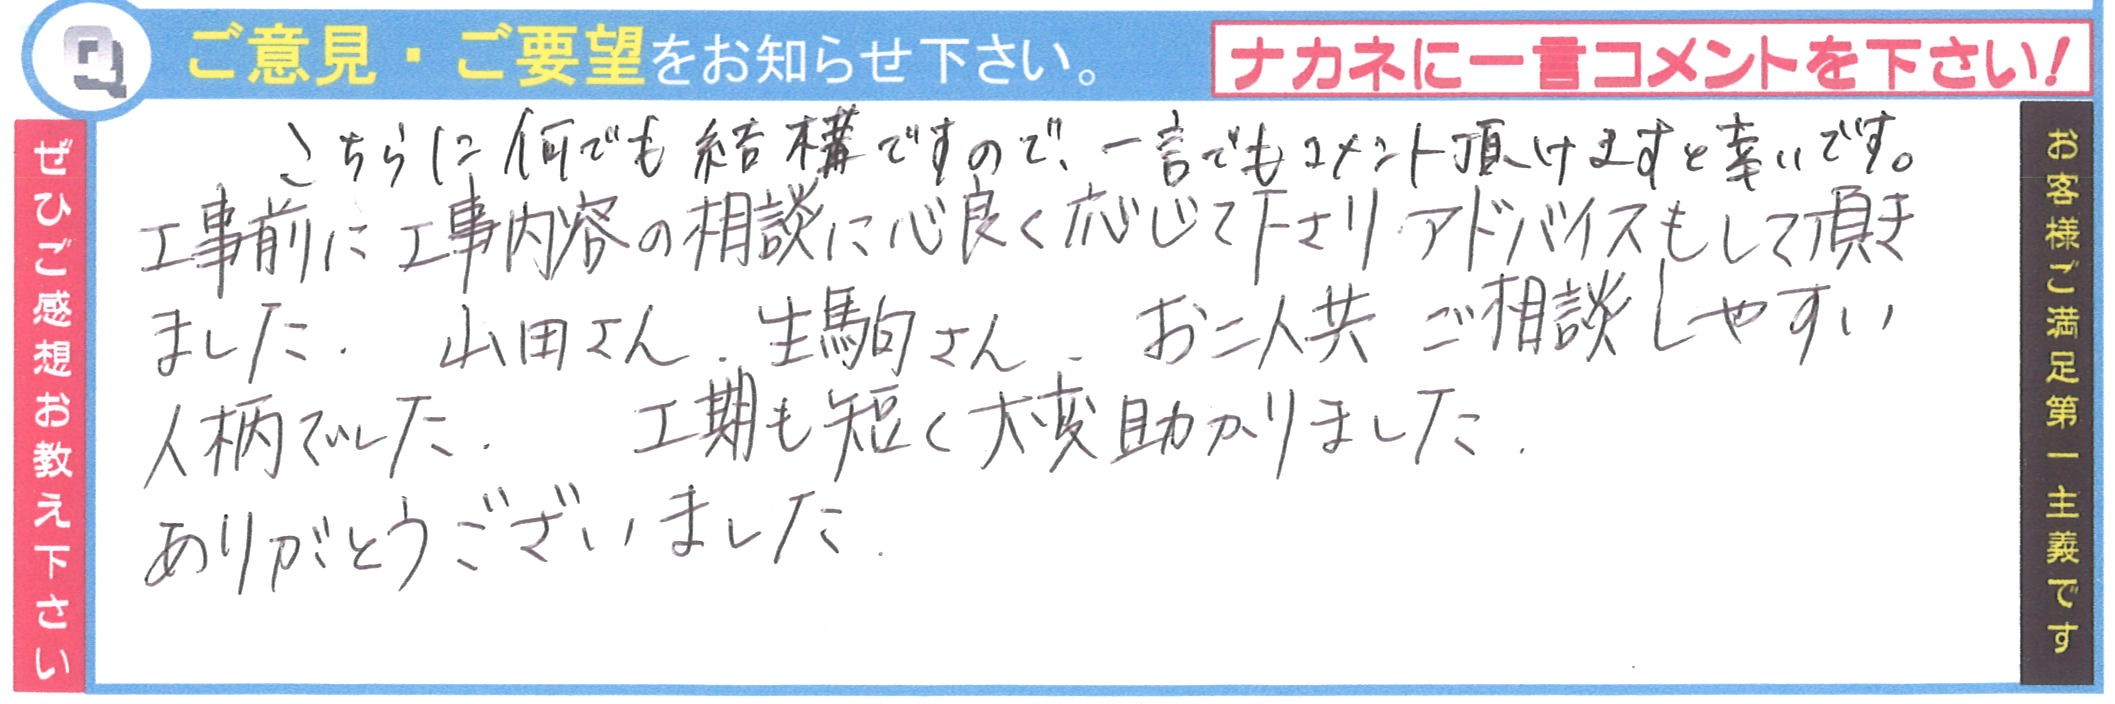 Q ご意見・ご要望をお知らせ下さい。
ナカネに一言コメントを下さい!
ぜひご感想お教え下さい
こちらに何でも結構ですので、一言でもコメント頂けますと幸いです。
工事前に工事内容の相談に心良く応じて下さりアドバイスもして頂き
ました. 山田さん. 生駒さん. お二人共 ご相談しやすい
人柄でした. 工期も短く大変助かりました.
ありがとうございました.
お客様ご満足第一主義です